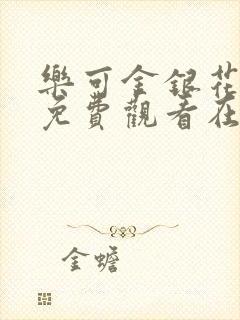 樂可金銀花
免費觀看在
金蟾